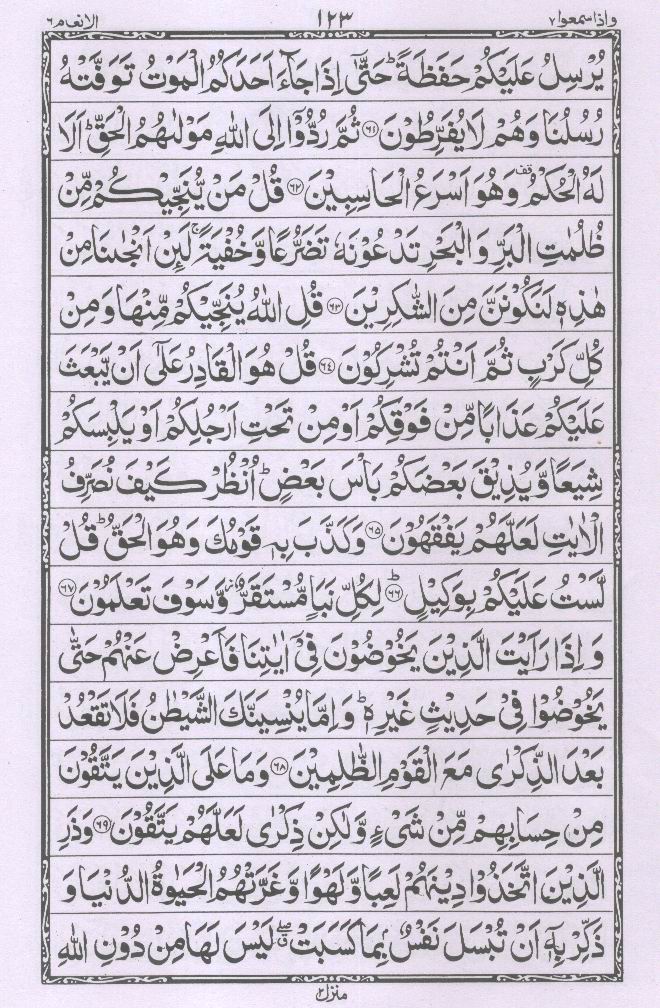 واذا سمعوا ٧ ١٢٣ الانعام ٦
يُرْسِلُ عَلَيْكُمْ حَفَظَةً ؕ حَتّٰۤى اِذَا جَآءَ اَحَدَكُمُ الْمَوْتُ تَوَفَّتْهُ
رُسُلُنَا وَهُمْ لَا يُفَرِّطُوْنَ ۝٦١ ثُمَّ رُدُّوْۤا اِلَى اللّٰهِ مَوْلٰىهُمُ الْحَقِّ ؕ اَلَا
لَهُ الْحُكْمُ ۫ وَهُوَ اَسْرَعُ الْحَاسِبِيْنَ ۝٦٢ قُلْ مَنْ يُّنَجِّيْكُمْ مِّنْ
ظُلُمٰتِ الْبَرِّ وَ الْبَحْرِ تَدْعُوْنَهٗ تَضَرُّعًا وَّ خُفْيَةً ۚ لَىِٕنْ اَنْجٰىنَا مِنْ
هٰذِهٖ لَنَكُوْنَنَّ مِنَ الشّٰكِرِيْنَ ۝٦٣ قُلِ اللّٰهُ يُنَجِّيْكُمْ مِّنْهَا وَ مِنْ
كُلِّ كَرْبٍ ثُمَّ اَنْتُمْ تُشْرِكُوْنَ ۝٦٤ قُلْ هُوَ الْقَادِرُ عَلٰۤى اَنْ يَّبْعَثَ
عَلَيْكُمْ عَذَابًا مِّنْ فَوْقِكُمْ اَوْ مِنْ تَحْتِ اَرْجُلِكُمْ اَوْ يَلْبِسَكُمْ
شِيَعًا وَّ يُذِيْقَ بَعْضَكُمْ بَاْسَ بَعْضٍ ؕ اُنْظُرْ كَيْفَ نُصَرِّفُ
الْاٰيٰتِ لَعَلَّهُمْ يَفْقَهُوْنَ ۝٦٥ وَكَذَّبَ بِهٖ قَوْمُكَ وَهُوَ الْحَقُّ ؕ قُلْ
لَّسْتُ عَلَيْكُمْ بِوَكِيْلٍ ؕ۝٦٦ لِكُلِّ نَبَاٍ مُّسْتَقَرٌّ ۫ وَّسَوْفَ تَعْلَمُوْنَ ۝٦٧
وَ اِذَا رَاَيْتَ الَّذِيْنَ يَخُوْضُوْنَ فِيْۤ اٰيٰتِنَا فَاَعْرِضْ عَنْهُمْ حَتّٰى
يَخُوْضُوْا فِيْ حَدِيْثٍ غَيْرِهٖ ؕ وَ اِمَّا يُنْسِيَنَّكَ الشَّيْطٰنُ فَلَا تَقْعُدْ
بَعْدَ الذِّكْرٰى مَعَ الْقَوْمِ الظّٰلِمِيْنَ ۝٦٨ وَمَا عَلَى الَّذِيْنَ يَتَّقُوْنَ
مِنْ حِسَابِهِمْ مِّنْ شَیْءٍ وَّلٰكِنْ ذِكْرٰى لَعَلَّهُمْ يَتَّقُوْنَ ۝٦٩ وَذَرِ
الَّذِيْنَ اتَّخَذُوْا دِيْنَهُمْ لَعِبًا وَّلَهْوًا وَّ غَرَّتْهُمُ الْحَيٰوةُ الدُّنْيَا وَ
ذَكِّرْ بِهٖۤ اَنْ تُبْسَلَ نَفْسٌۢ بِمَا كَسَبَتْ ۖ ق لَيْسَ لَهَا مِنْ دُوْنِ اللّٰهِ
منزل ٢